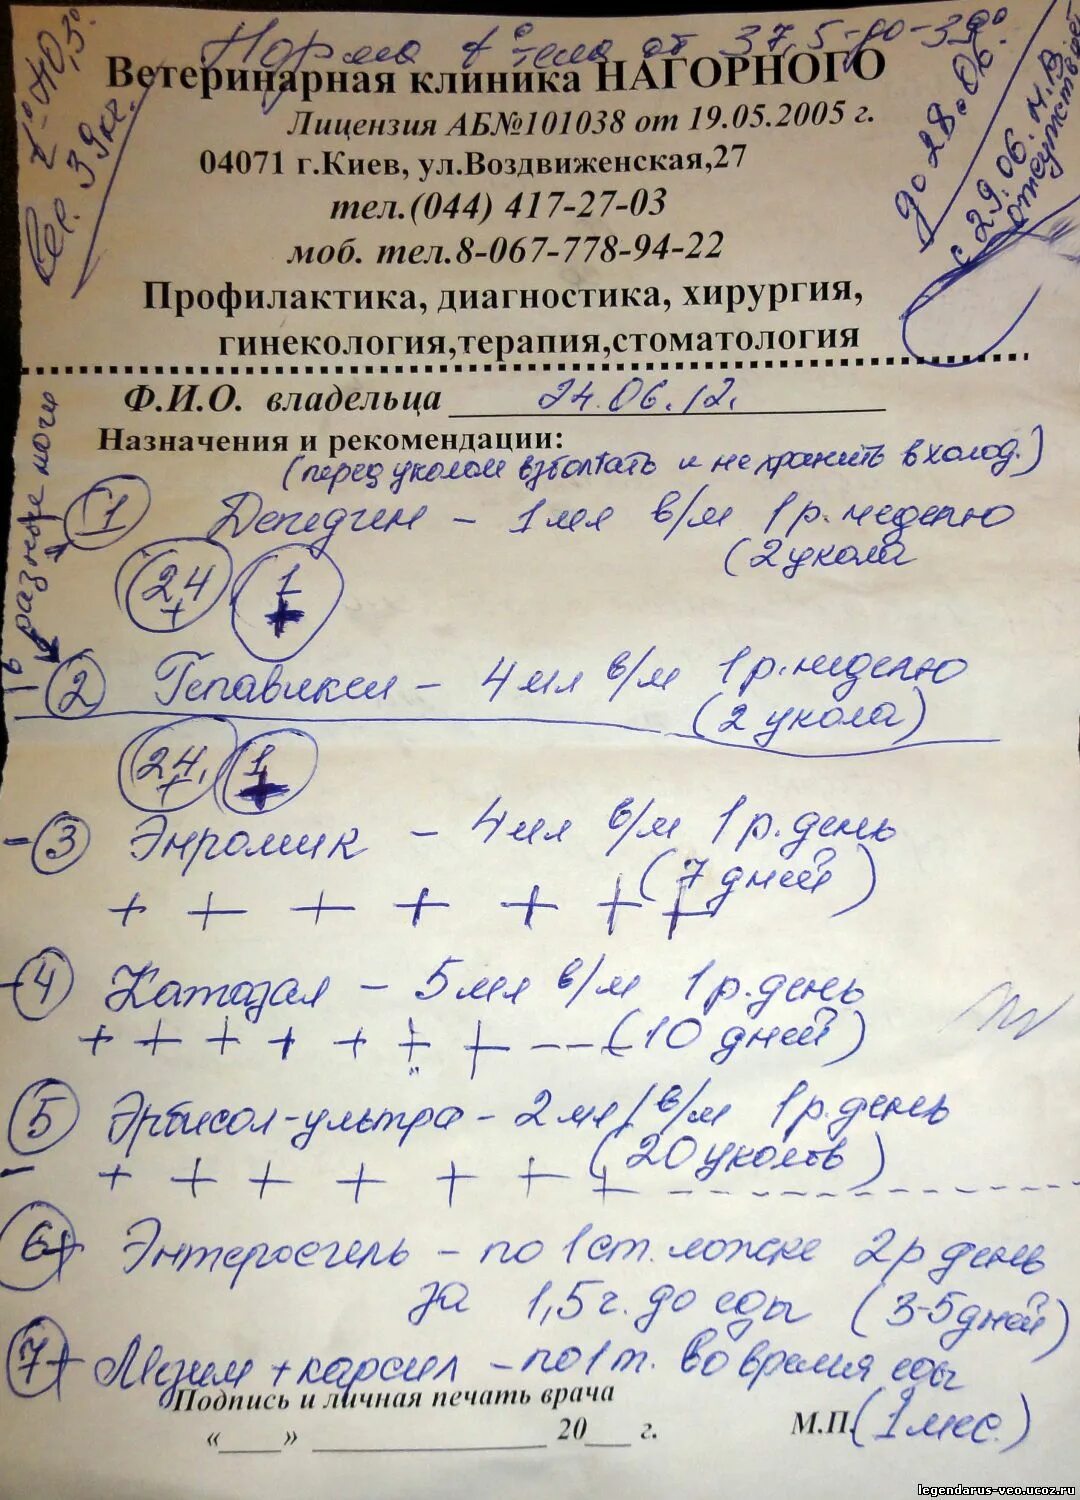 Норма t° тела от 37,5-до-39°
t°-40,5°
Вес. 39кг.
до 28.06.
с 29.06. Н.В.
отсутствует
Ветеринарная клиника НАГОРНОГО
Лицензия АБ№101038 от 19.05.2005 г.
04071 г.Киев, ул.Воздвиженская,27
тел.(044) 417-27-03
моб. тел.8-067-778-94-22
Профилактика, диагностика, хирургия,
гинекология,терапия,стоматология
Ф.И.О. владельца 24.06.12.
Назначения и рекомендации:
(перед уколом взболтать и не хранить в холод.)
в разные ноги
1 Депедин - 1мл в/м 1 р. неделю
(2 укола
24 + 1 +
2 Гепавикел - 4 мл в/м 1 р. неделю
(2 укола)
24. + 1 +
- 3 Энромик - 4 мл в/м 1 р. день
(7 дней)
+ + + + + + +
- 4 Катозал - 5 мл в/м 1 р. день
+ + + + + + + - - - (10 дней)
5 Эрбисол-ультра - 2 мл/в/м 1 р. день
- + + + + + + + (20 уколов)
6+ Энтеросгель - по 1 ст. ложке 2 р день
за 1,5 г. до еды (3-5 дней)
7+ Мезим + карсил - по 1 т. во время еды
Подпись и личная печать врача
«____» ________________ 20___ г. М.П. (1 мес.)
legendarus-veo.ucoz.ru